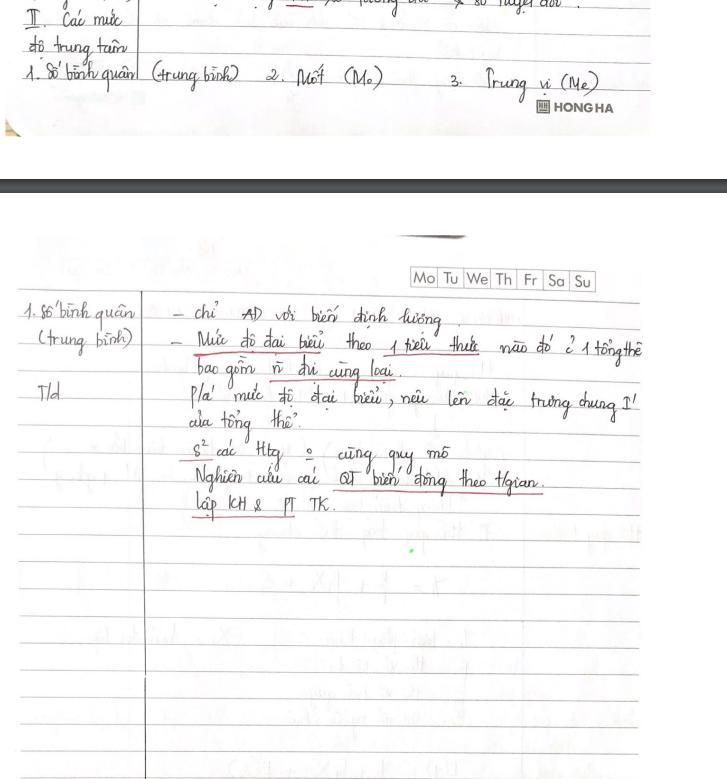 số tuyệt đối.
II. Các mức
độ trung tâm
1. Số bình quân (trung bình) 2. Mốt (Mo) 3. Trung vị (Me)
HONG HA
Mo Tu We Th Fr Sa Su
1. Số bình quân - chỉ AD với biến định lượng
(trung bình) - Mức độ đại biểu theo 1 tiêu thức nào đó ở 1 tổng thể
bao gồm n̄ đvi cùng loại.
T/d P/á mức độ đại biểu, nêu lên đặc trưng chung I'
của tổng thể.
S² các Htg o cùng quy mô
Nghiên cứu các QT biến động theo t/gian.
lập KH & PT TK.